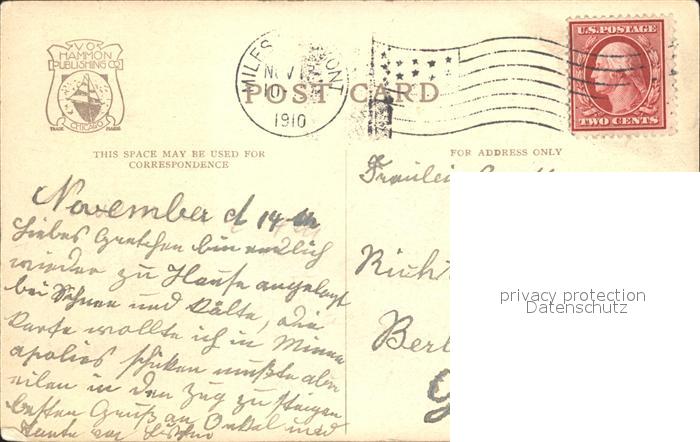 V.O.
HAMMON
PUBLISHING CO.
CHICAGO
TRADE MARK
MILES MONT
NOV
1910
U.S. POSTAGE
TWO CENTS
POST CARD
THIS SPACE MAY BE USED FOR
CORRESPONDENCE
FOR ADDRESS ONLY
November d 14
Liebes Gretchen bin endlich
wieder zu Hause angelangt
bei Schnee und Kälte, die
Karte wollte ich in Minne
apolies schicken mußte aber
eilen in den Zug zu steigen
besten Gruß an Onkel und
Tante von
Fräulein
Berl
privacy protection
Datenschutz